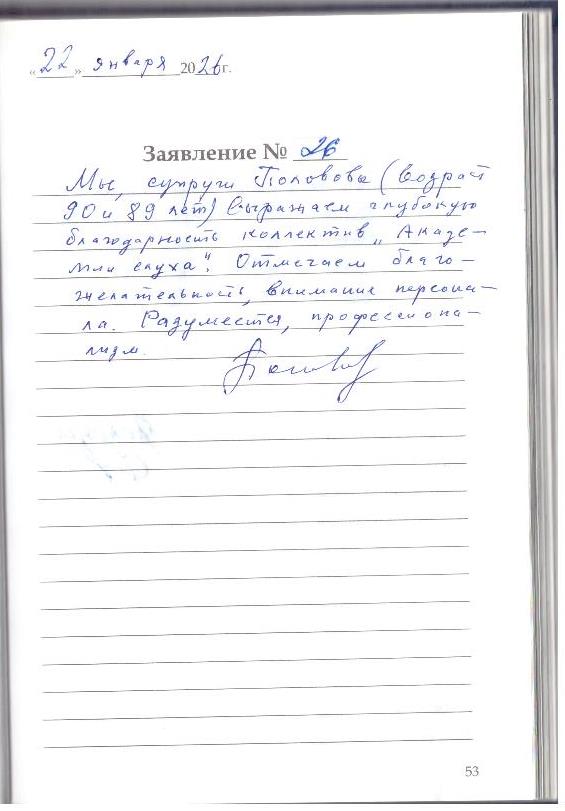 «22» января 2026г.
Заявление № 26
Мы, супруги Полововы (возраст
90 и 89 лет) выражаем глубокую
благодарность коллектив „Акаде-
мии слуха". Отмечаем благо-
желательность, внимание персона-
ла. Разумеется, профессиона-
лизм.
53